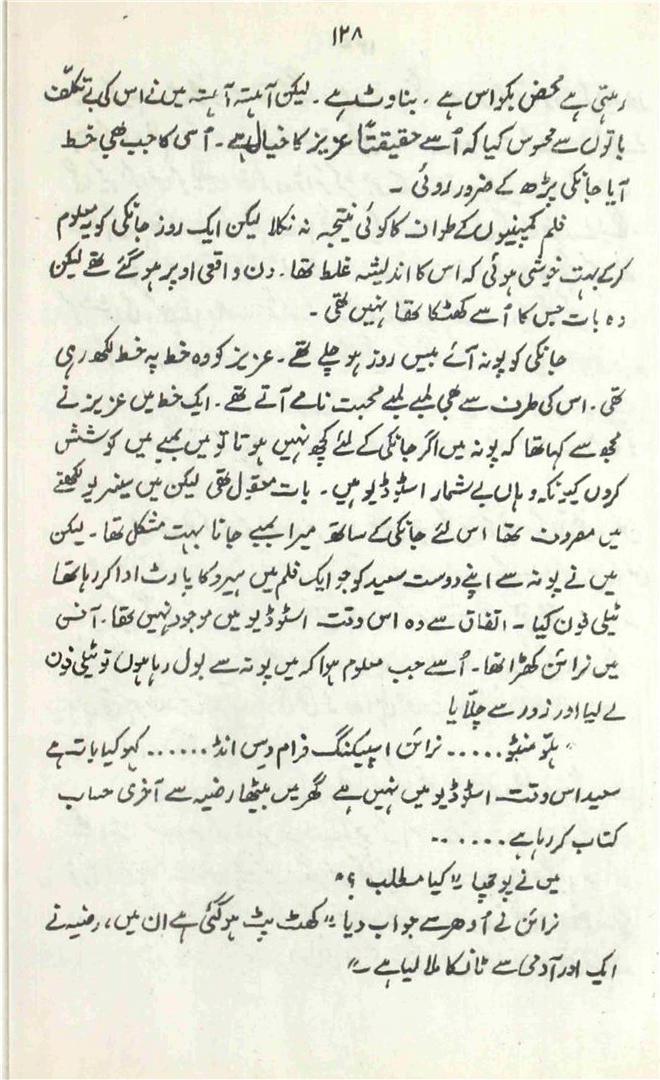 ۱۲۸
رہتی ہے محض بکواس ہے۔ بناوٹ ہے۔ لیکن آہستہ آہستہ میں نے اس کی بے تکلّف
باتوں سے محسوس کیا کہ اُسے حقیقتاً عزیز کا خیال ہے۔ اُسی کا جب بھی خط
آیا جانکی پڑھ کے ضرور روئی۔
فلم کمپنیوں کے طواف کا کوئی نتیجہ نہ نکلا لیکن ایک روز جانکی کو یہ معلوم
کر کے بہت خوشی ہوئی کہ اس کا اندیشہ غلط تھا۔ دن واقعی اوپر ہو گئے تھے لیکن
وہ بات جس کا اُسے کھٹکا تھا نہیں تھی۔
جانکی کو پونہ آئے بیس روز ہو چلے تھے۔ عزیز کو وہ خط پہ خط لکھ رہی
تھی۔ اس کی طرف سے بھی لمبے لمبے محبت نامے آتے تھے۔ ایک خط میں عزیز نے
مجھ سے کہا تھا کہ پونہ میں اگر جانکی کے لئے کچھ نہیں ہوتا تو میں بمبے میں کوشش
کروں کیونکہ وہاں بے شمار اسٹوڈیو ہیں۔ بات معقول تھی لیکن میں سینریو لکھنے
میں مصروف تھا اس لئے جانکی کے ساتھ میرا بمبے جانا بہت مشکل تھا۔ لیکن
میں نے پونہ سے اپنے دوست سعید کو جو ایک فلم میں ہیرو کا پارٹ ادا کر رہا تھا
ٹیلی فون کیا۔ اتفاق سے وہ اس وقت اسٹوڈیو میں موجود نہیں تھا۔ آفس
میں نرائن کھڑا تھا۔ اُسے جب معلوم ہوا کہ میں پونہ سے بول رہا ہوں تو ٹیلی فون
لے لیا اور زور سے چلّایا
”ہلّو منٹو...... نرائن اسپیکنگ فرام دِس انڈ...... کہو کیا بات ہے
سعید اس وقت اسٹوڈیو میں نہیں ہے گھر میں بیٹھا رضیہ سے آخری حساب
کتاب کر رہا ہے......
میں نے پوچھا ”کیا مطلب؟“
نرائن نے اُدھر سے جواب دیا ”کھٹ پٹ ہو گئی ہے ان میں، رضیہ نے
ایک اور آدمی سے ٹانکا ملا لیا ہے۔“